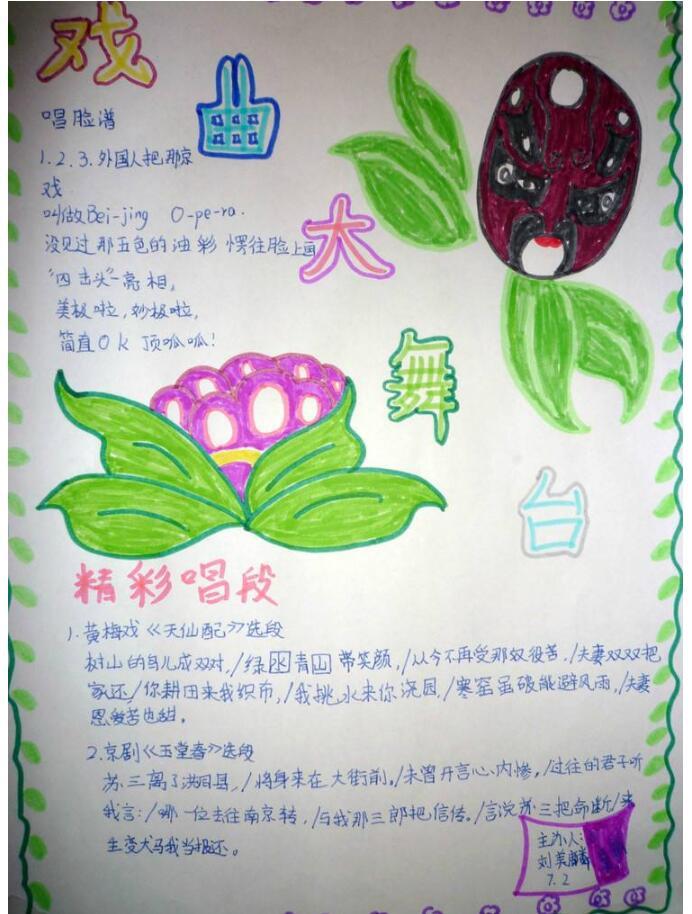 戏
曲
大
舞
台
唱脸谱
1.2.3.外国人把那京
戏
叫做Bei-jing O-pe-ra.
没见过那五色的油彩 愣往脸上画
"四击头"一亮相,
美极啦,妙极啦,
简直Ok 顶呱呱!
精彩唱段
1.黄梅戏《天仙配》选段
树山的鸟儿成双对,/绿水青山带笑颜,/从今不再受那奴役苦./夫妻双双把
家还/你耕田来我织布,/我挑水来你浇园,/寒窑虽破能避风雨,/夫妻
恩爱苦也甜。
2.京剧《玉堂春》选段
苏三离了洪洞县,/将身来在大街前。/未曾开言心内惨。/过往的君子听
我言:/哪一位去往南京转,/与我那三郎把信传。/言说苏三把命断/来
生变犬马我当报还。
主办人:
刘美麟
7.2